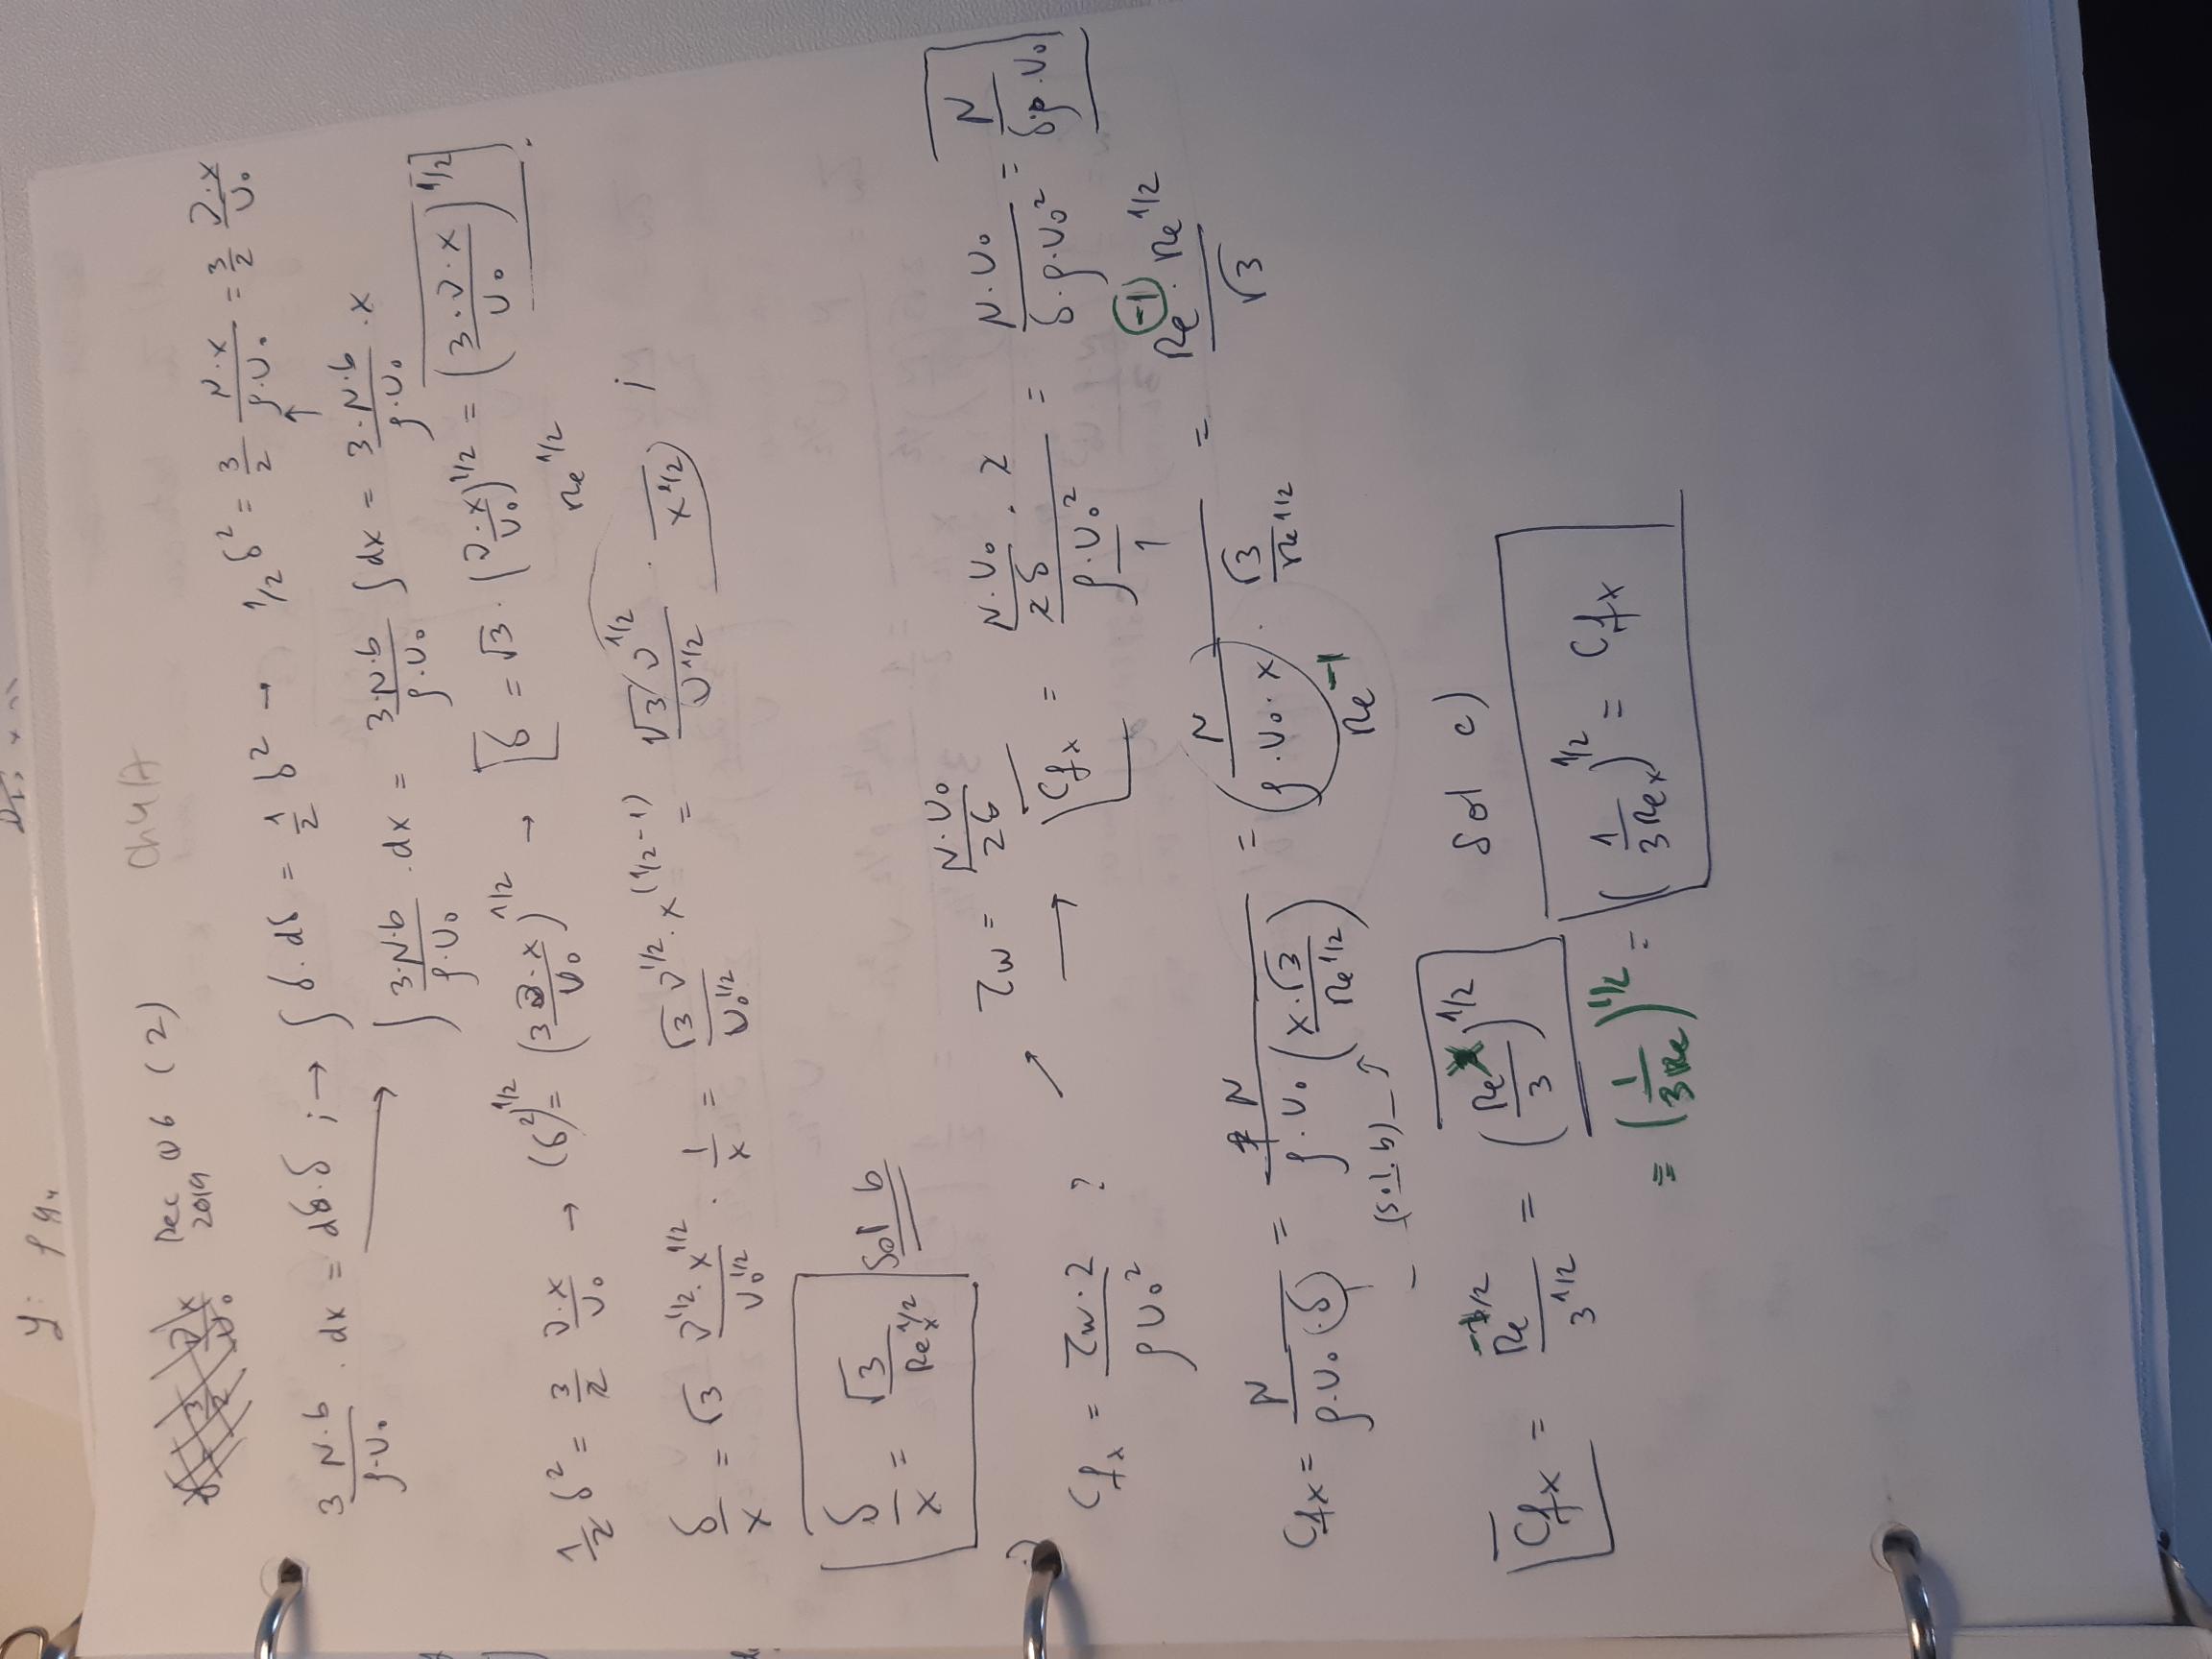 y: ρ g
Dec 2019 Q6 (2) Ch4A
3 N·b / ρ·U₀ · dx = dδ·δ ; → ∫ δ·dδ = 1/2 δ² → 1/2 δ² = 3/2 N·x / ρ·U₀ = 3/2 ν·x / U₀
→ ∫ 3·N·b / ρ·U₀ · dx = 3·N·b / ρ·U₀ ∫ dx = 3·N·b / ρ·U₀ · x
1/2 δ² = 3/2 ν·x / U₀ → (δ²)^1/2 = (3 ν·x / U₀)^1/2 → [δ = √3 · (ν·x / U₀)^1/2 = (3·ν·x / U₀)^1/2].
Re^1/2
δ/x = √3 ν^1/2 · x^1/2 / U₀^1/2 · 1/x = √3 ν^1/2 · x^(1/2-1) / U₀^1/2 = √3 ν^1/2 / U^1/2 · 1 / x^1/2 ;
δ/x = √3 / Reₓ^1/2 Sol b
τw = N·U₀ / 2δ
Cfₓ = τw·2 / ρU₀² ? → Cfₓ = N·U₀ / 2δ · 2 / ρ·U₀² / 1 = N·U₀ / δ·ρ·U₀² = N / δ·ρ·U₀
Cfₓ = N / ρ·U₀·δ = N / ρ·U₀ (x·√3 / Re^1/2) = N / ρ·U₀·x · √3 / Re^1/2 = Re^-1 · Re^1/2 / √3
(sol. b) Re^-1
Cfₓ = Re^-1/2 / 3^1/2 = (Re / 3)^1/2 Sol c)
= (1 / 3Re)^1/2 = (1 / 3Reₓ)^1/2 = Cfₓ